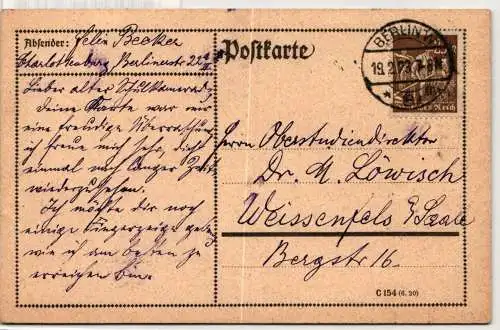 Absender: Felix Becker
Charlottenburg, Berlinerstr. 22a
Postkarte
BERLIN
19.2.23. 7-8N.
Lieber alter Schulkamerad,
Deine Karte war mir
eine freudige Überraschung,
ich freue mich sehr, dich
einmal nach langer Zeit
wiederzusehen.
Ich möchte dir noch
einige Fingerzeige geben,
wie ich am besten zu
erreichen bin.
Herrn Oberstudiendirektor
Dr. M. Löwisch
Weissenfels a/Saale
Bergstr 16.
C 154 (6. 20)